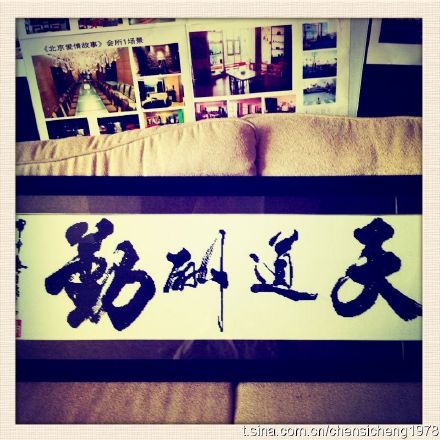 《北京爱情故事》会所1场景
天道酬勤
t.sina.com.cn/chensicheng1978